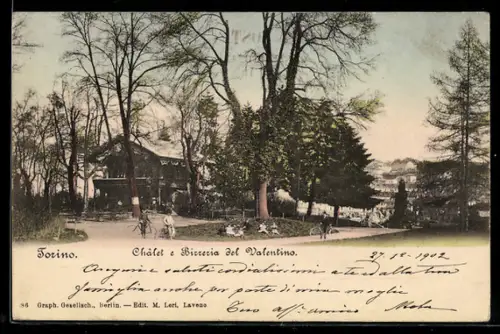 Torino. Châlet e Birreria del Valentino.
27. 12. 1902
Auguri e saluti cordialissimi a te ed alla tua
famiglia anche per parte di mia moglie
Tuo aff. amico
86 Graph. Gesellsch., Berlin. — Edit. M. Leri, Laveno